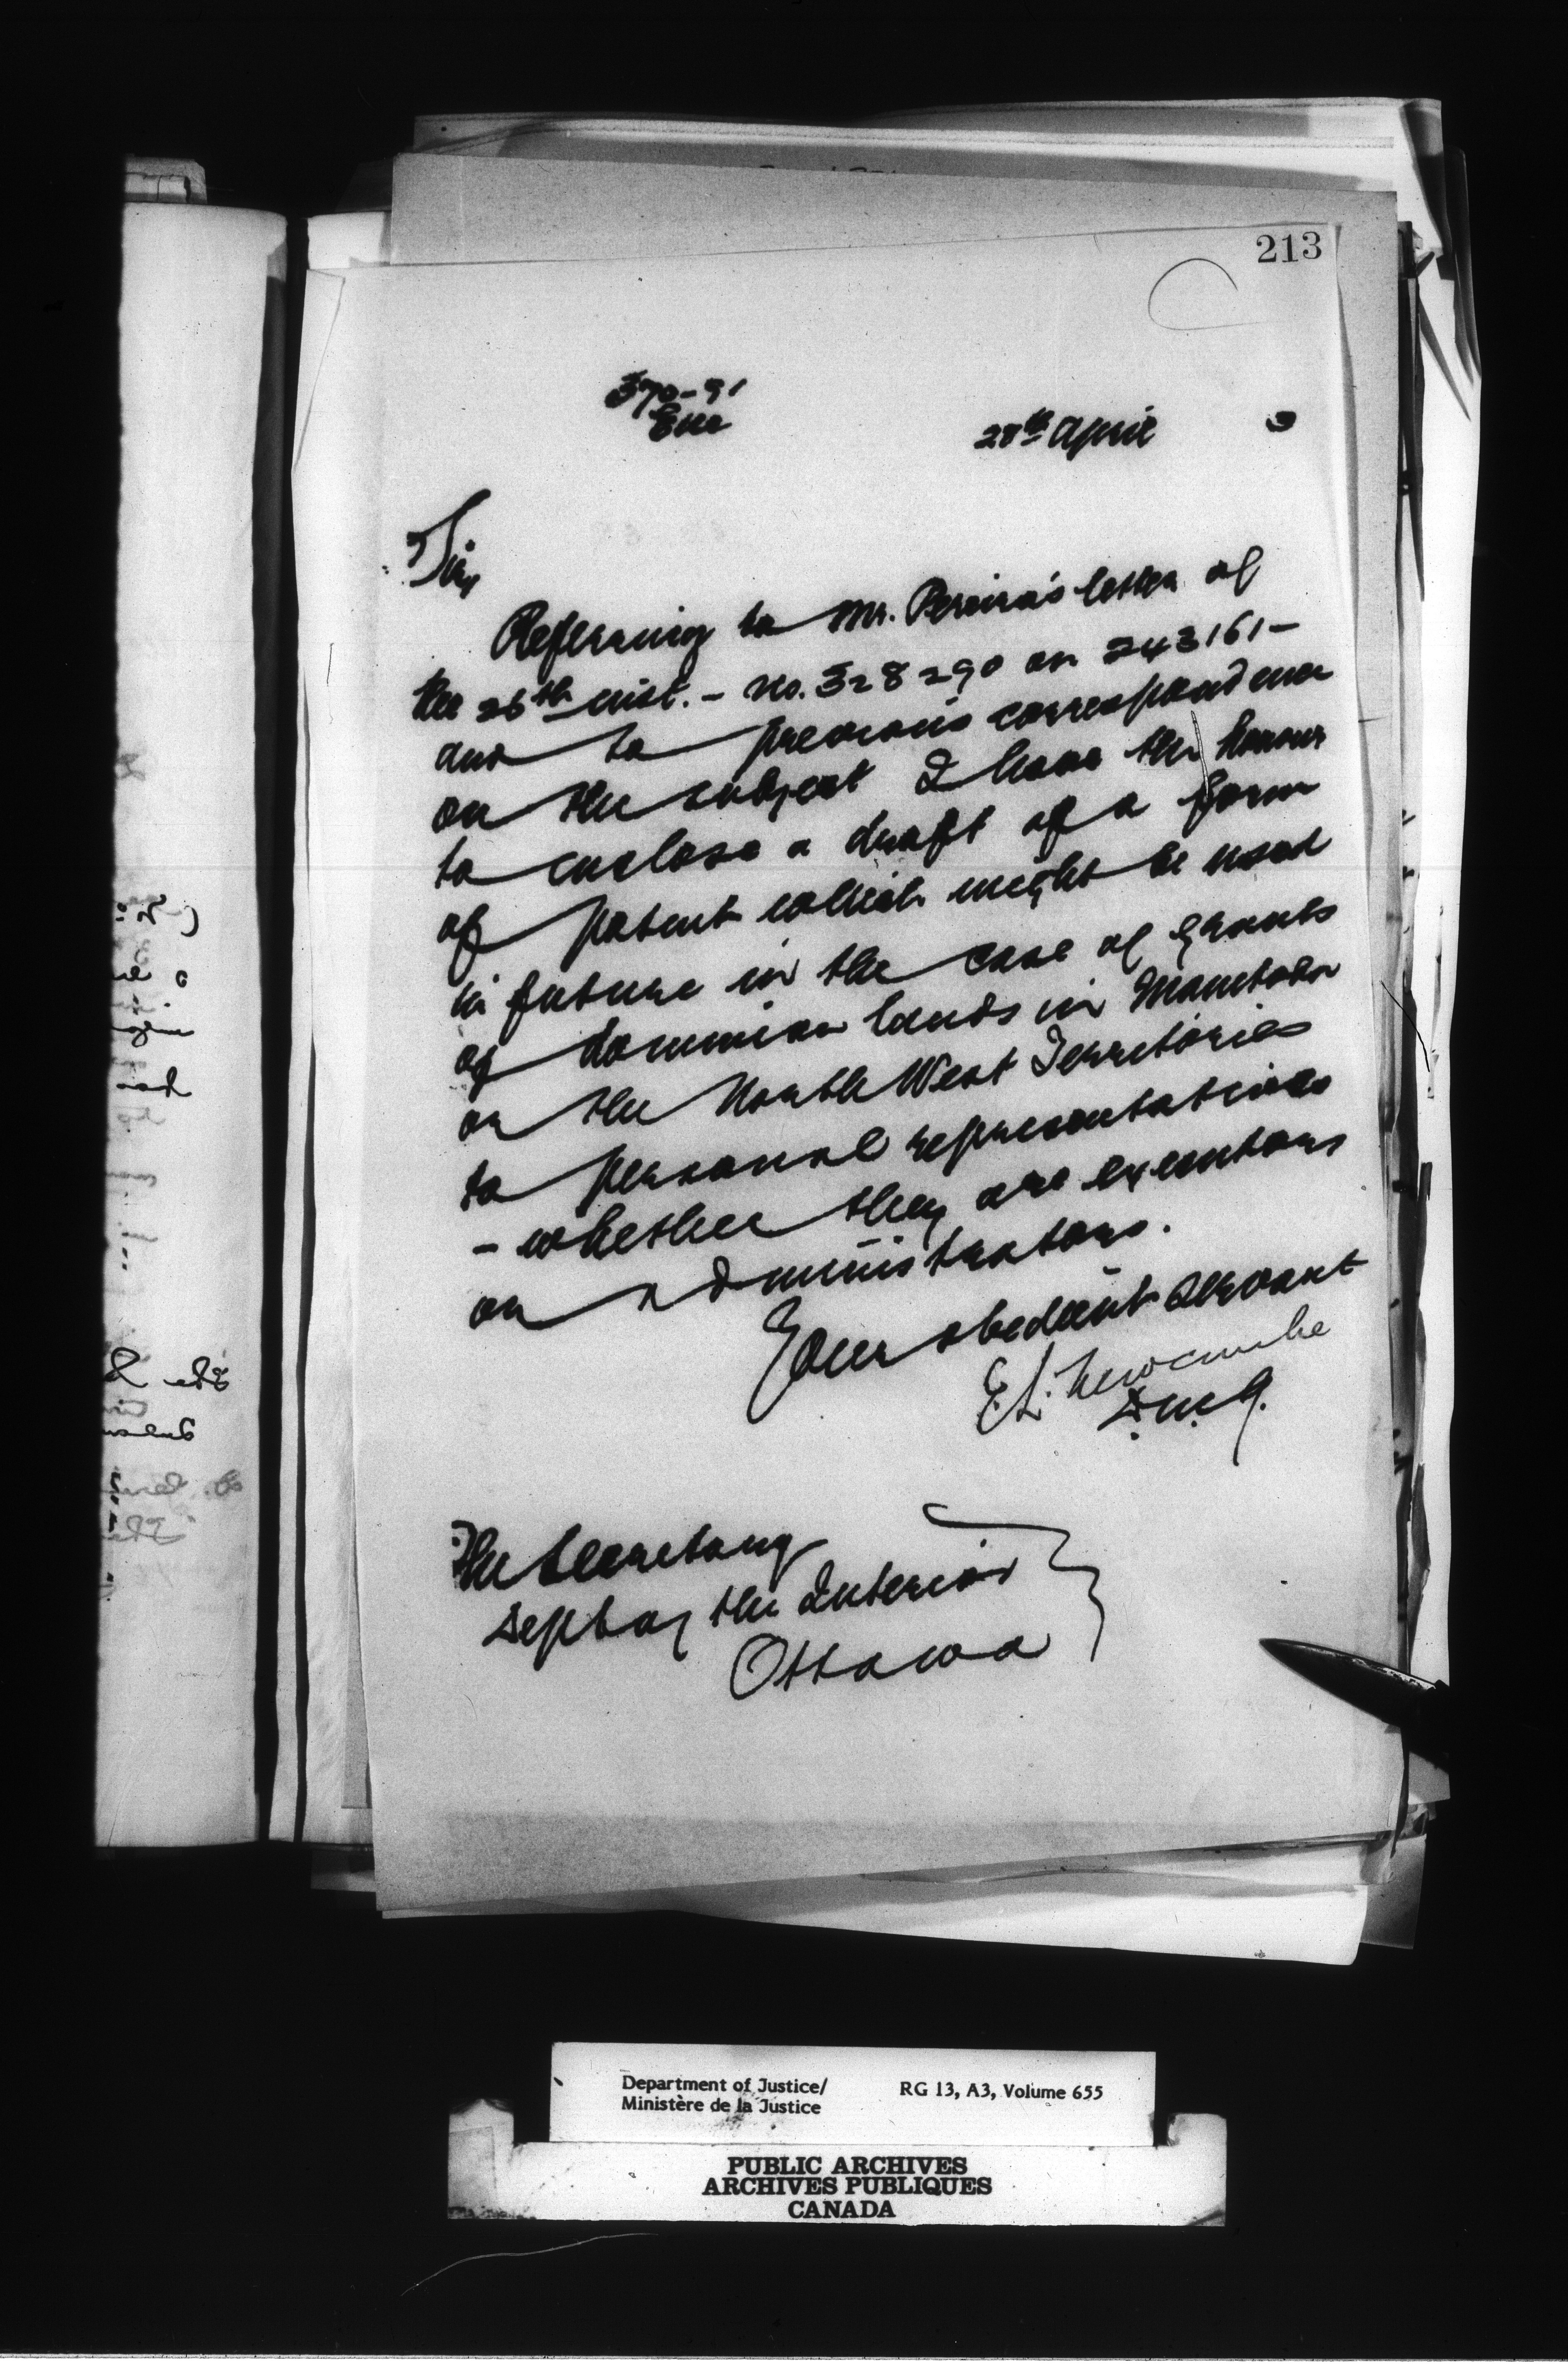 213
370-91
Enc
28th April 3
Sir,
Referring to Mr. Pereira's letter of
the 26th inst. - No. 328290 on 243161 -
and to previous correspondence
on the subject I have the honour
to enclose a draft of a form
of patent which might be used
in future in the case of grants
of dominion lands in Manitoba
or the North West Territories
to personal representatives
- whether they are executors
or administrators.
Your obedient servant
E.L. Newcombe
D.M.J.
The Secretary
Dept of the Interior
Ottawa
Department of Justice/
Ministère de la Justice
RG 13, A3, Volume 655
PUBLIC ARCHIVES
ARCHIVES PUBLIQUES
CANADA